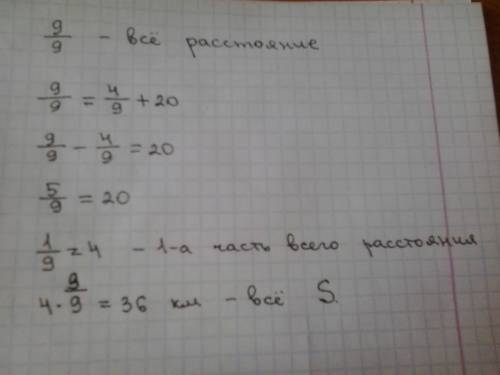 9/9 - всё расстояние
9/9 = 4/9 + 20
9/9 - 4/9 = 20
5/9 = 20
1/9 = 4 - 1-а часть всего расстояния
4 · 9 = 36 км - всё S.